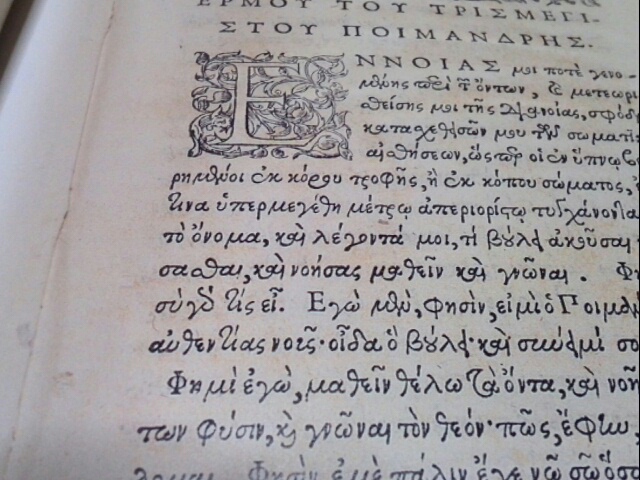 ΕΡΜΟΥ ΤΟΥ ΤΡΙΣΜΕΓΙ-
ΣΤΟΥ ΠΟΙΜΑΝΔΡΗΣ.
ΕΝΝΟΙΑΣ μοι ποτὲ γενο-
μένης περὶ τῶν ὄντων, καὶ μετεωρι
θείσης μοι τῆς διανοίας, σφόδ
κατασχεθησῶν μου τῶν σωματι
αἰσθήσεων, ὥσπερ οἱ ἐν ὕπνῳ
ρημένοι ἐκ κόρου τροφῆς, ἢ ἐκ κόπου σώματος,
τινα ὑπερμεγέθη μέτρῳ ἀπεριορίστῳ τυγχάνοντα
τὸ ὄνομα, καὶ λέγοντά μοι, τί βούλει ἀκοῦσαι
σασθαι, καὶ νοήσας μαθεῖν καὶ γνῶναι. Φη
σὺ γὸ τίς εἶ. Εγὼ μὲν, φησὶν, εἰμὶ ὁ Ποιμάν
αὐθεντίας νοῦς· οἶδα ὃ βούλει· καὶ σύνειμί σο
Φημὶ ἐγὼ, μαθεῖν θέλω τὰ ὄντα, καὶ νοῆ
των φύσιν, καὶ γνῶναι τὸν θεόν· πῶς, ἔφην,
λομαι. Φησὶν ἐμὲ πάλιν ἔχε νῷ σῷ ὅσα